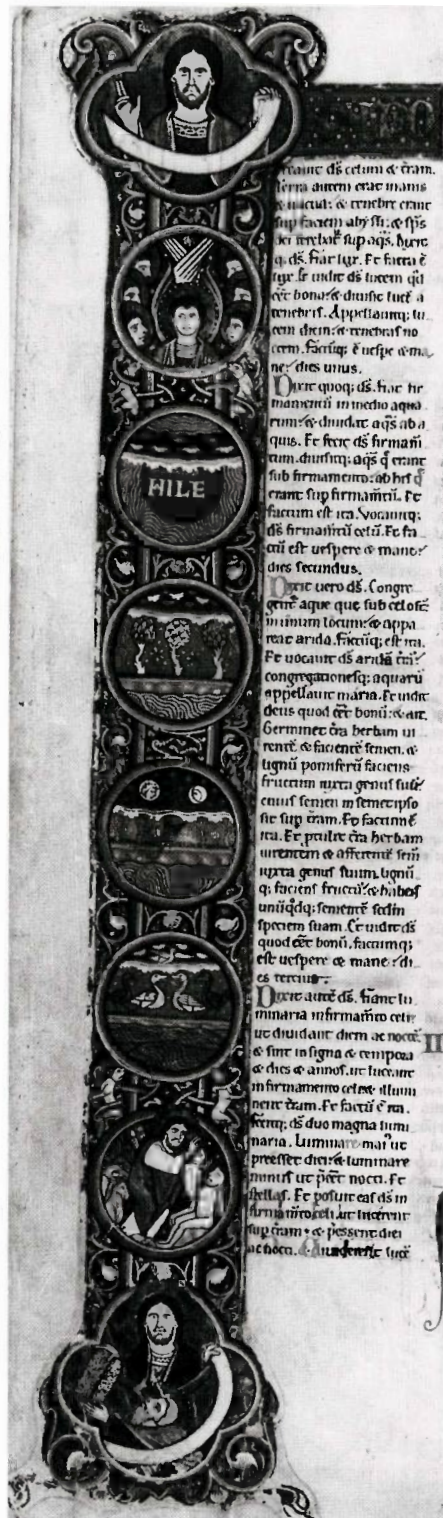 HILE
creauit ds̄ celum & t̄ram.
Terra autem erat inanis
& uacua: & tenebre erant
sup faciem abyssi: & sp̄s
dei ferebat᷑ sup aq̄s. Dixit
q; ds̄. Fiat lux. Et facta ē
lux. & uidit ds̄ lucem qd̄
eēt bona: & diuisit lucē a
tenebris. Appellauitq; lu
cem diem: & tenebras no
ctem. Factūq; ē uespe & ma
ne: dies unus.
Dixit quoq; ds̄. Fiat fir
mamentū in medio aqua
rum: & diuidat aq̄s ab a
quis. Et fecit ds̄ firmam̄
tum. diuisitq; aq̄s q̄ erant
sub firmamento: ab his q̄
erant sup firmam̄tū. Et
factum est ita. Vocauitq;
ds̄ firmam̄tū celū. Et fa
ctū est uespere & mane:
dies secundus.
Dixit uero ds̄. Congre
gent᷑ aque que sub celo sēt
in unum locum: & appa
reat arida. Factūq; est ita.
Et uocauit ds̄ aridā t̄rā:
congregationesq; aquarū
appellauit maria. Et uidit
deus quod eēt bonū: & ait.
Germinet t̄ra herbam ui
rentē & facientē semen. &
lignū pomiferū faciens
fructum iuxta genus suū:
cuius semen in semetipso
sit sup t̄ram. Et factum ē
ita. Et ptulit t̄ra herbam
uirentem & afferentē sem̄
iuxta genus suum. lignū
q; faciens fructū: & habēs
unūq̄dq; sementē scdm
speciem suam. Et uidit ds̄
quod eēt bonū. factumq;
est uespere & mane: di
es tercius.
Dixit autē ds̄. Fiant lu
minaria in firmam̄to celi:
ut diuidant diem ac noctē.
& sint in signa & tempora
& dies & annos. ut luceant
in firmamento celi & illumi
nent t̄ram. Et factū ē ita.
fecitq; ds̄ duo magna lumi
naria. Luminare mai᷒ ut
preesset diei: & luminare
minus ut p̄eēt nocti. Et
stellas. Et posuit eas ds̄ in
firmam̄to celi. ut lucerent
sup t̄ram: & p̄essent diei
ac nocti. & diuiderent lucē
II